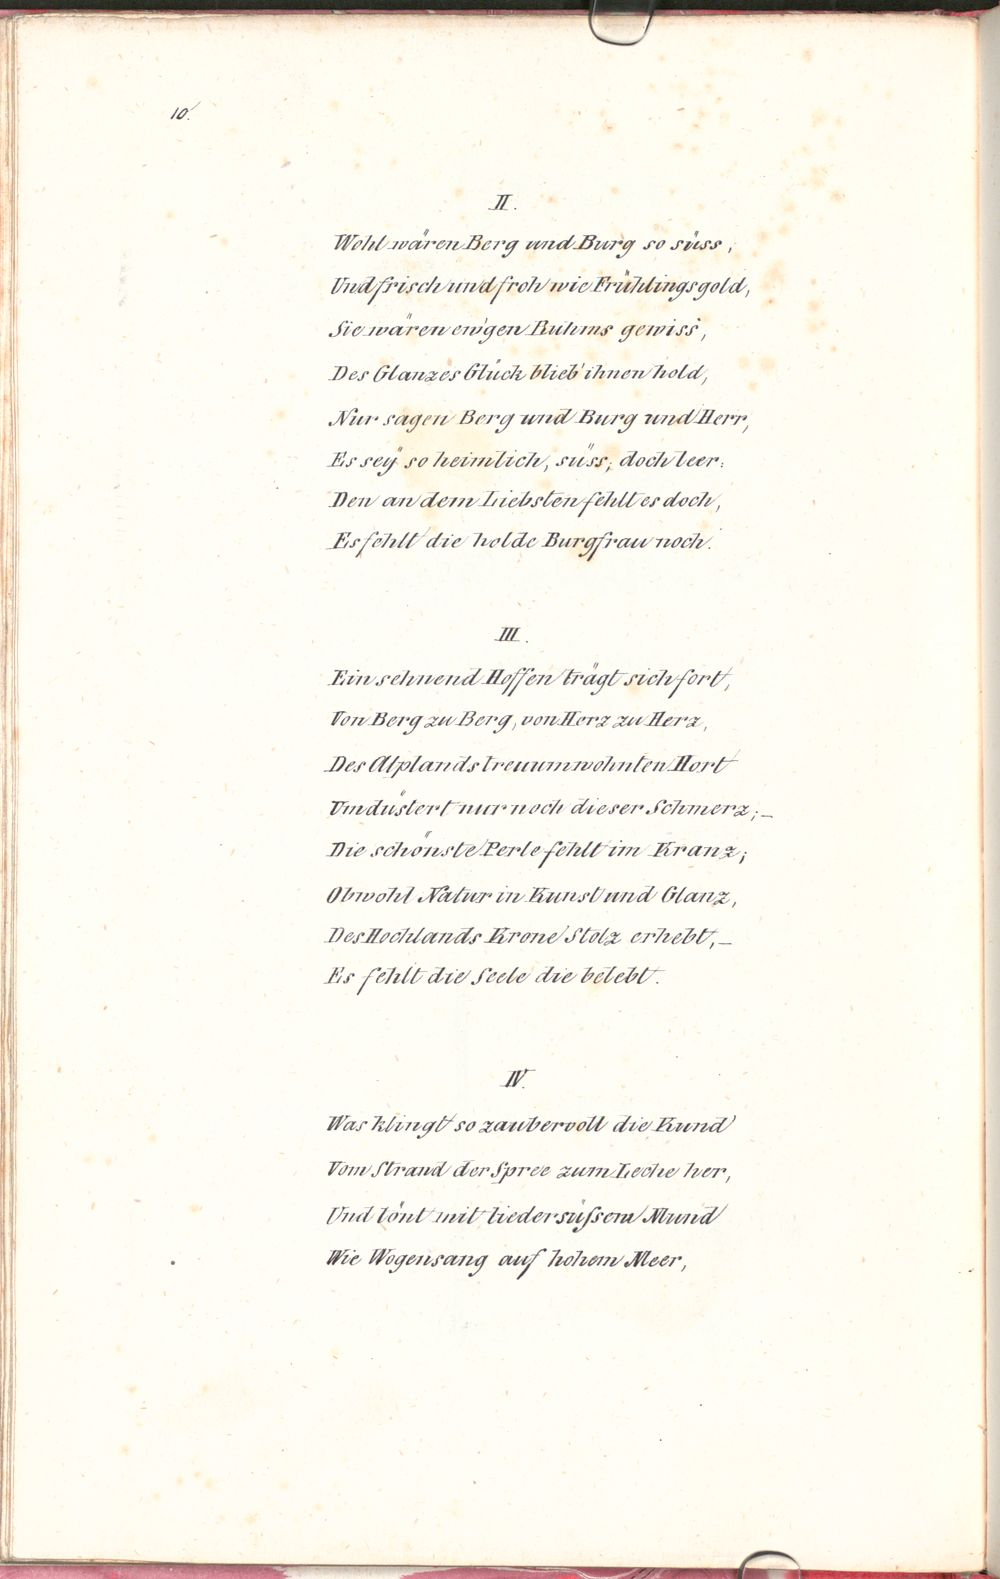 10.
II.
Wohl wären Berg und Burg so süss,
Und frisch und froh wie Frühlingsgold,
Sie wären ew'gen Ruhms gewiss,
Des Glanzes Glück blieb' ihnen hold,
Nur sagen Berg und Burg und Herr,
Es sey so heimlich, süss, doch leer:
Den an dem Liebsten fehlt es doch,
Es fehlt die holde Burgfrau noch.
III.
Ein sehnend Hoffen trägt sich fort,
Von Berg zu Berg, von Herz zu Herz,
Des Alplands treuumwohnten Hort
Umdüstert nur noch dieser Schmerz;—
Die schönste Perle fehlt im Kranz;
Obwohl Natur in Kunst und Glanz,
Des Hochlands Krone Stolz erhebt,—
Es fehlt die Seele die belebt.
IV.
Was klingt so zaubervoll die Kund
Vom Strand der Spree zum Leche her,
Und tönt mit liedersüssem Mund
Wie Wogensang auf hohem Meer,